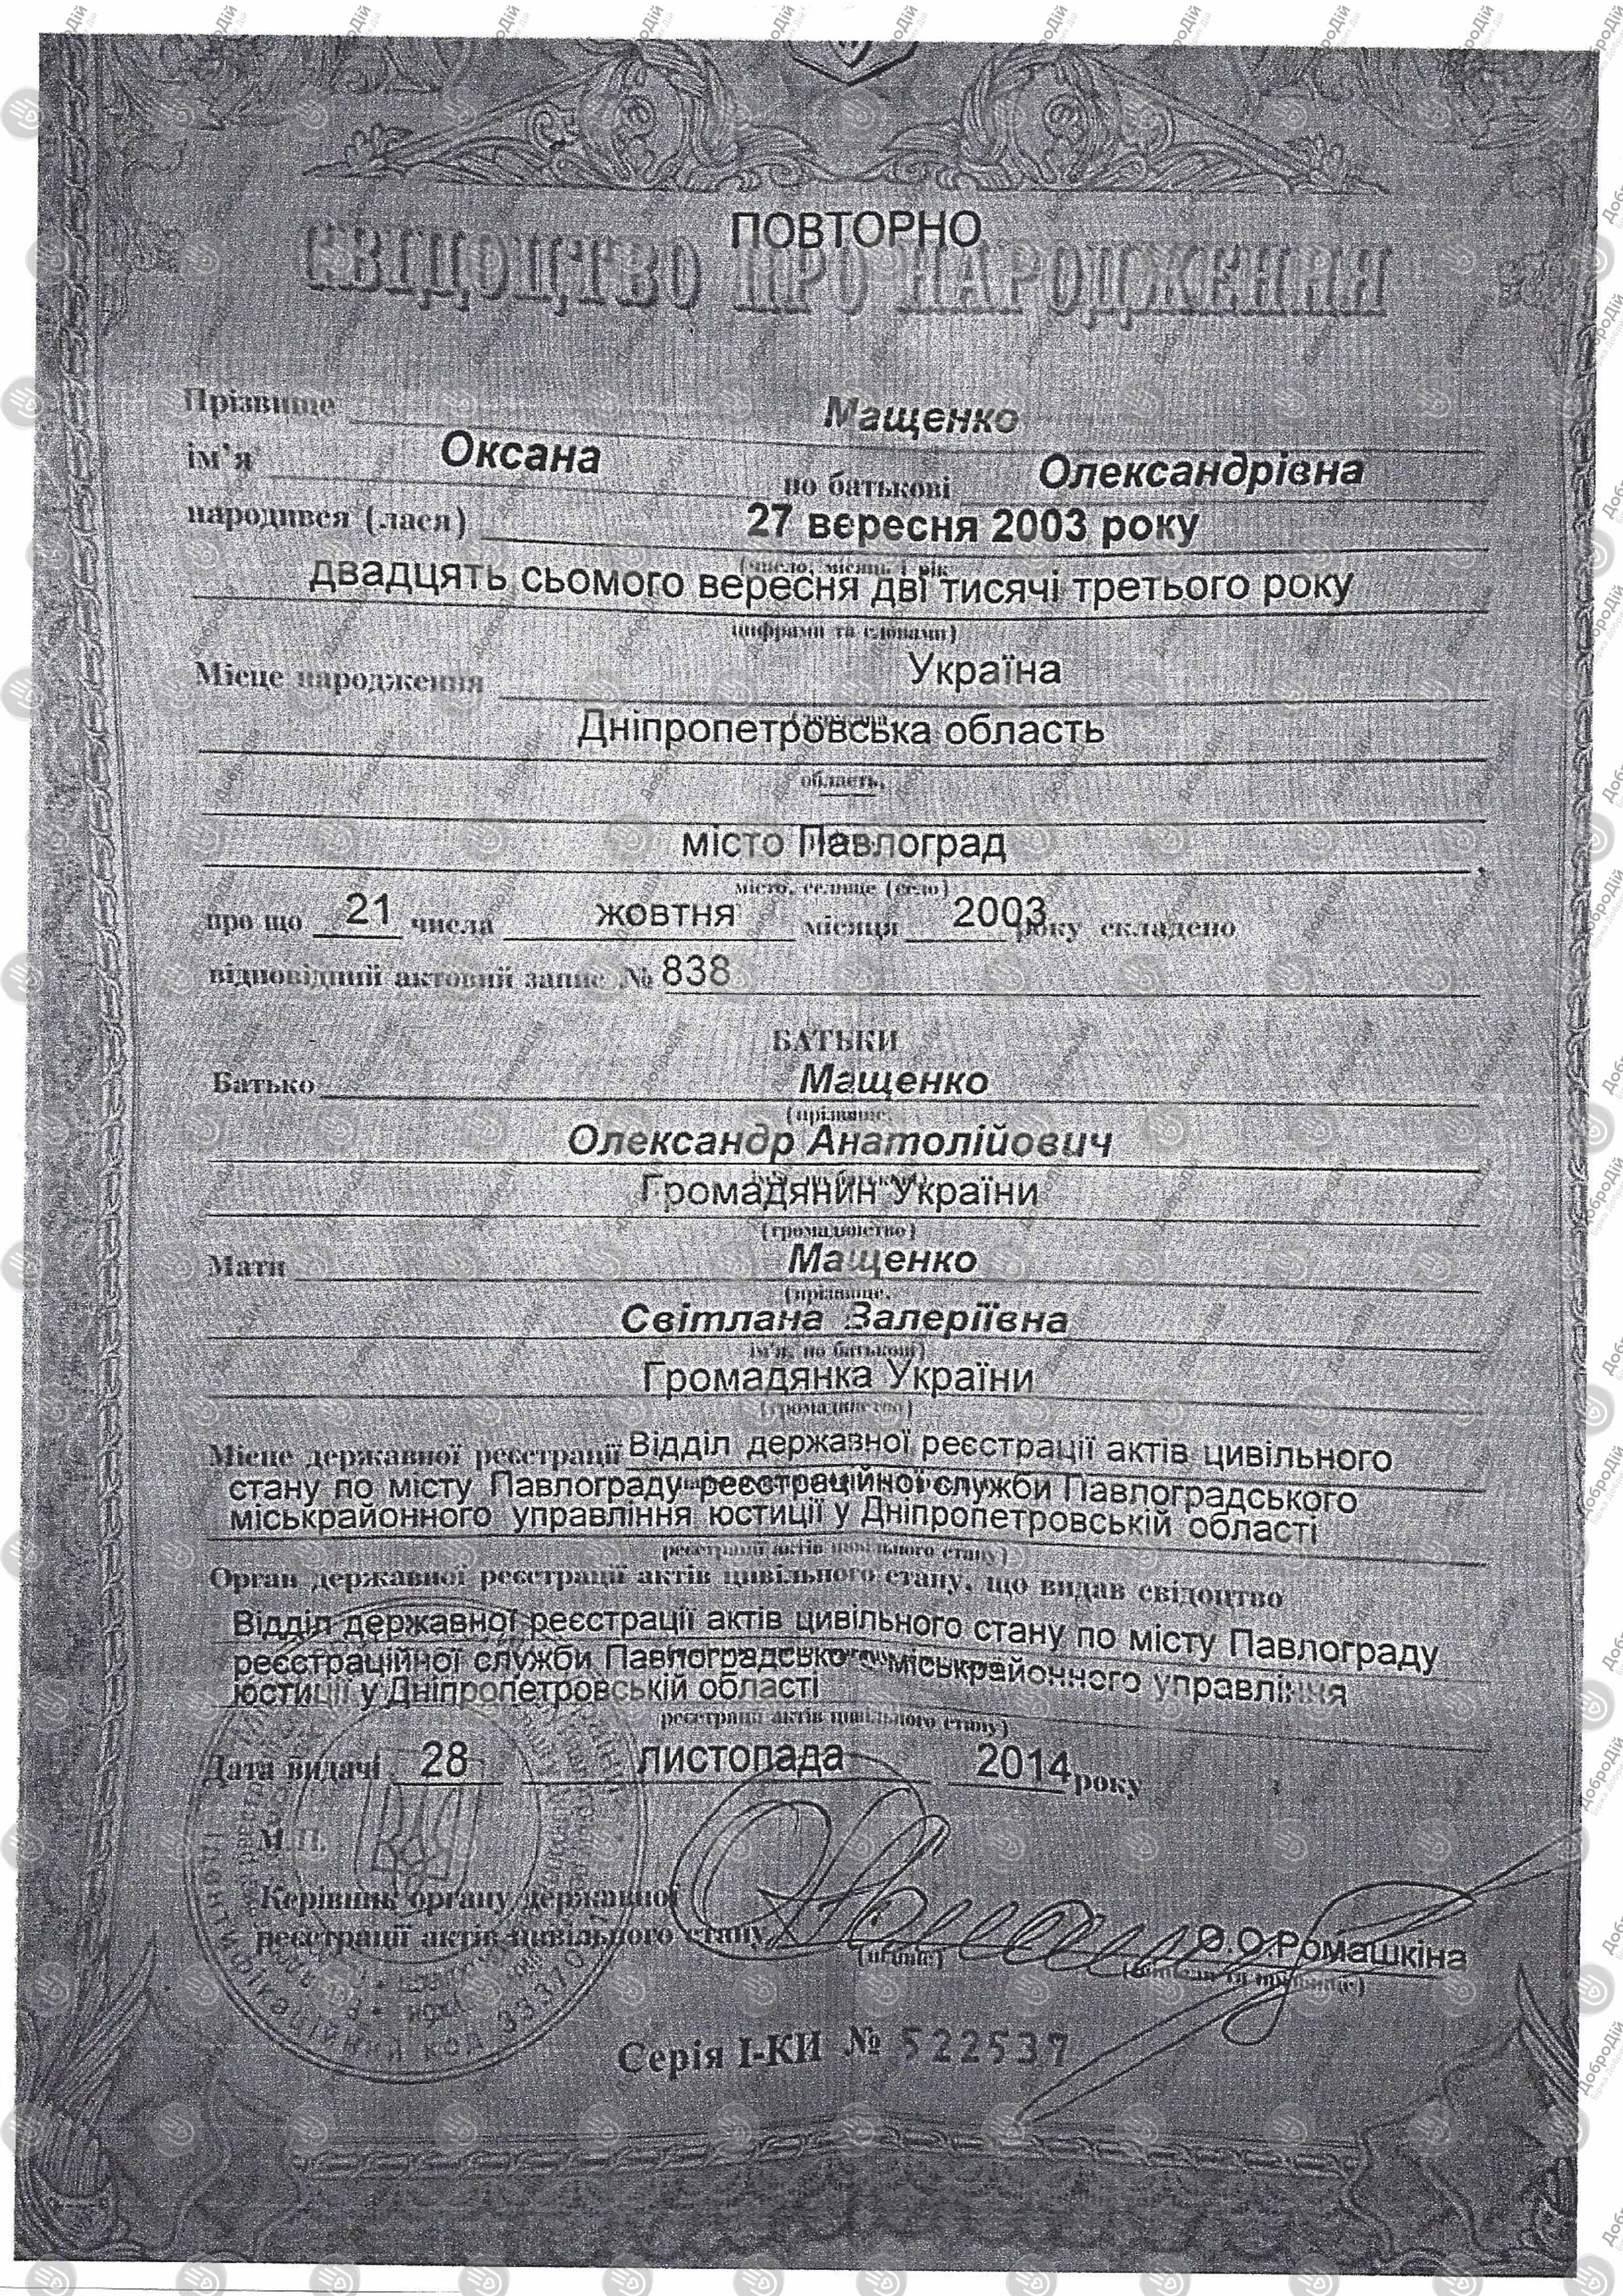 ПОВТОРНО
СВІДОЦТВО ПРО НАРОДЖЕННЯ
Прізвище Мащенко
ім'я Оксана по батькові Олександрівна
народився (лася) 27 вересня 2003 року
(число, місяць і рік
двадцять сьомого вересня дві тисячі третього року
цифрами та словами)
Місце народження Україна
Дніпропетровська область
область,
місто Павлоград
місто, селище (село)
про що 21 числа жовтня місяця 2003 року складено
відповідний актовий запис № 838
БАТЬКИ
Батько Мащенко
(прізвище,
Олександр Анатолійович
Громадянин України
(громадянство)
Мати Мащенко
(прізвище,
Світлана Валеріївна
ім'я, по батькові)
Громадянка України
(громадянство)
Місце державної реєстрації Відділ державної реєстрації актів цивільного
стану по місту Павлограду реєстраційної служби Павлоградського
міськрайонного управління юстиції у Дніпропетровській області
реєстрації актів цивільного стану)
Орган державної реєстрації актів цивільного стану, що видав свідоцтво
Відділ державної реєстрації актів цивільного стану по місту Павлограду
реєстраційної служби Павлоградського міськрайонного управління
юстиції у Дніпропетровській області
реєстрації актів цивільного стану)
Дата видачі 28 листопада 2014 року
М.П.
Керівник органу державної
реєстрації актів цивільного стану О.О.Ромашкіна
(підпис)
Серія І-КИ № 522537
ДоброДій